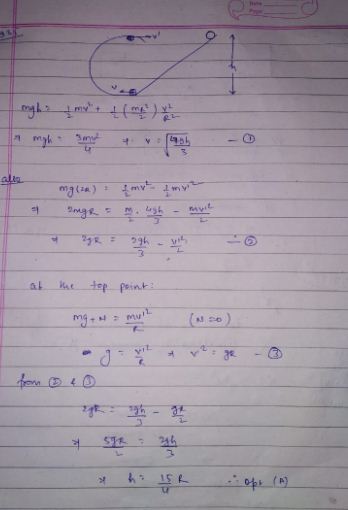 Date
Page
v'
h
v
mgh = 1/2 mv² + 1/2 (mR²/2) v²/R²
⇒ mgh = 3mv²/4 ⇒ v = √(4gh/3) — ①
also
mg(2R) = 1/2 mv² - 1/2 mv'²
⇒ 2mgR = m/2 · 4gh/3 - mv'²/2
⇒ 2gR = 2gh/3 - v'²/2 — ②
at the top point:
mg + N = mv'²/R (N=0)
g = v'²/R ⇒ v² = gR — ③
from ② & ③
2gR = 2gh/3 - gR/2
⇒ 5gR/2 = 2gh/3
⇒ h = 15/4 R ∴ opt (A)